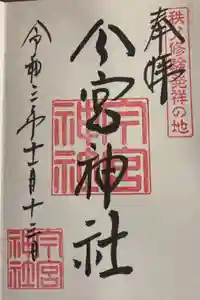 秩父修験発祥の地
奉拝
今宮神社
今宮神社
令和二年十一月十二日
今宮神社